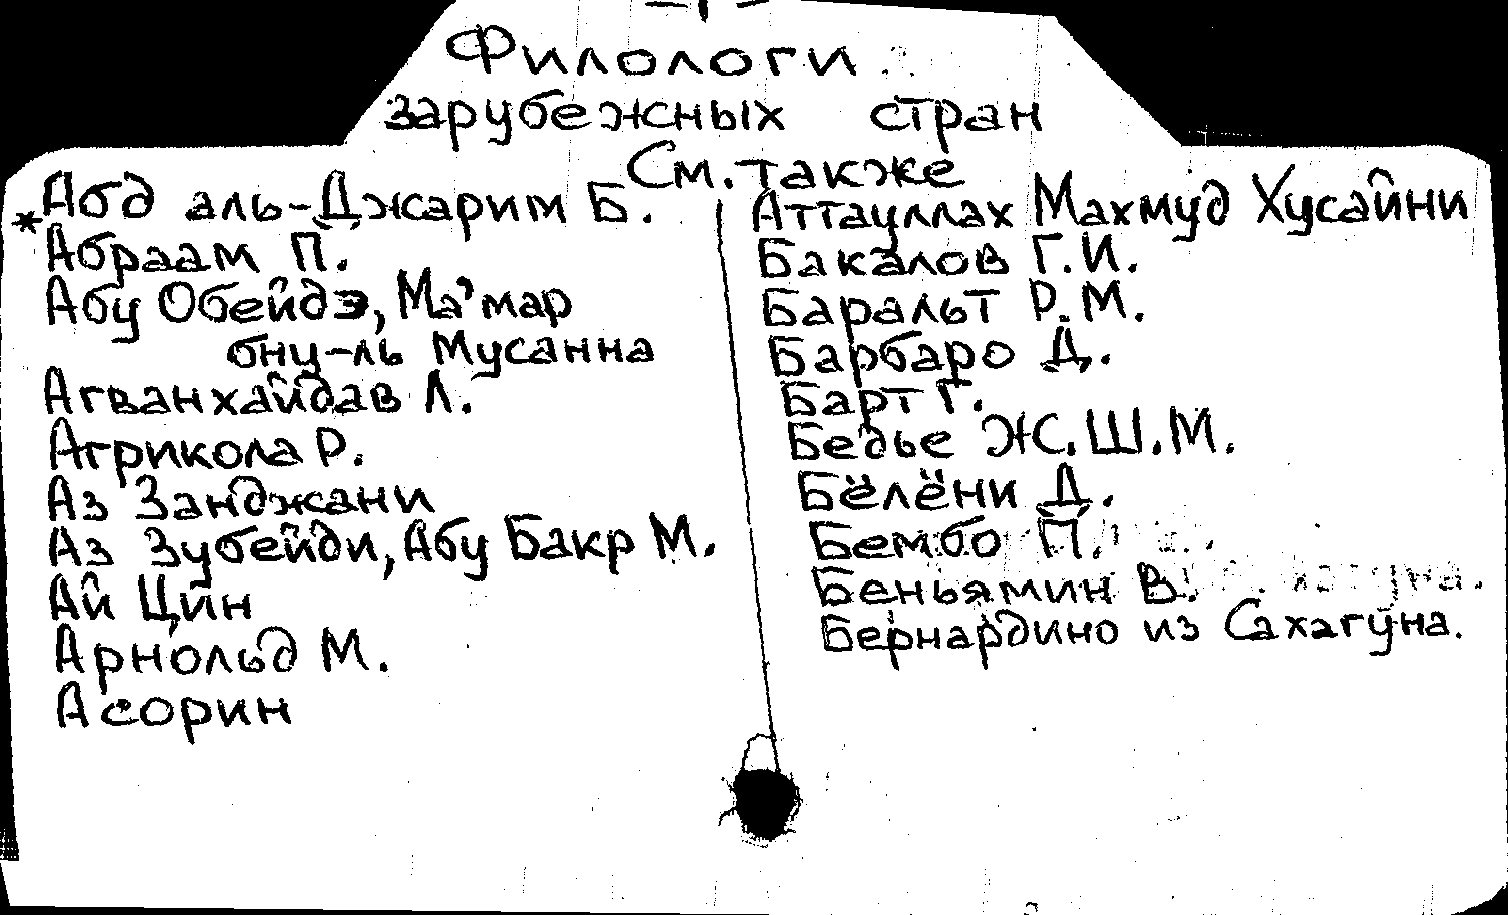 Филологи
зарубежных стран
См. также
Абд аль-Джарим Б.
* Абраам П.
Абу Обейдэ, Ма'мар
бну-ль Мусанна
Агванхайдав Л.
Агрикола Р.
Аз Занджани
Аз Зубейди, Абу Бакр М.
Ай Цин
Арнольд М.
Асорин
Аттауллах Махмуд Хусайни
Бакалов Г.И.
Баральт Р.М.
Барбаро Д.
Барт Г.
Бедье Ж.Ш.М.
Бёлёни Д.
Бембо П.
Беньямин В.
Бернардино из Сахагуна.